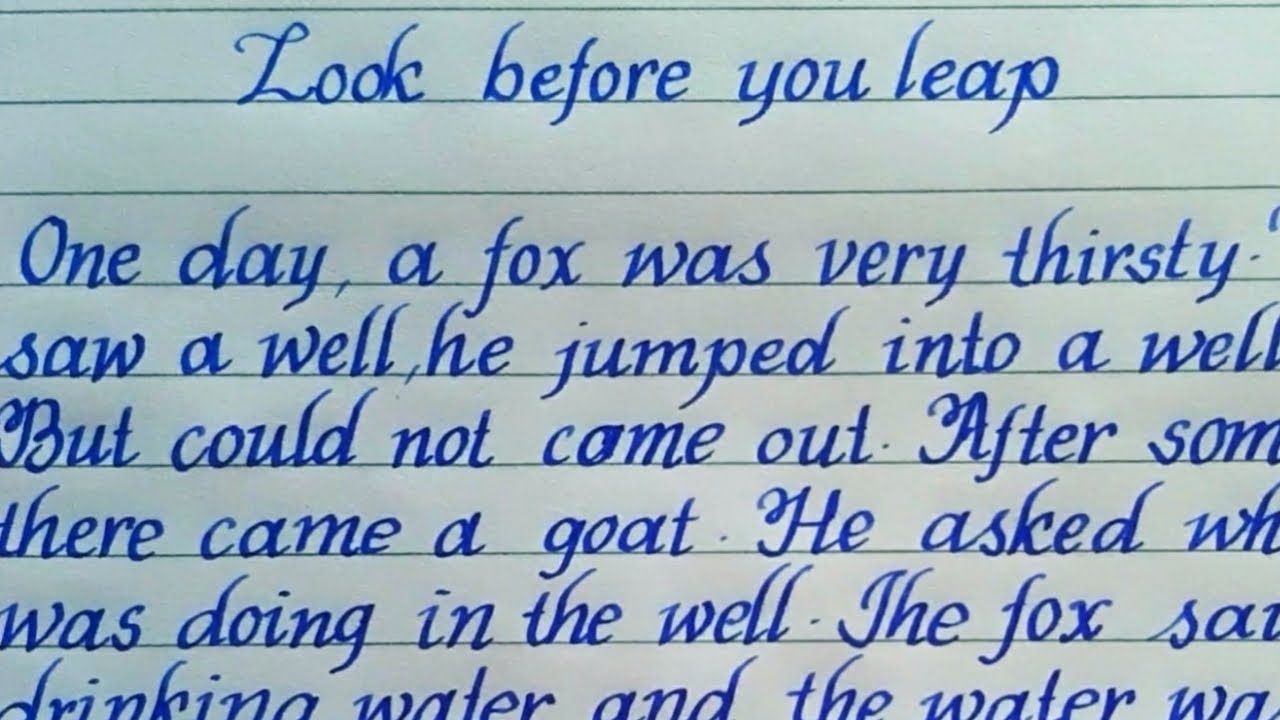 Look before you leap
One day, a fox was very thirsty.
saw a well, he jumped into a well
But could not came out. After som
there came a goat. He asked wh
was doing in the well. The fox sai
drinking water and the water was